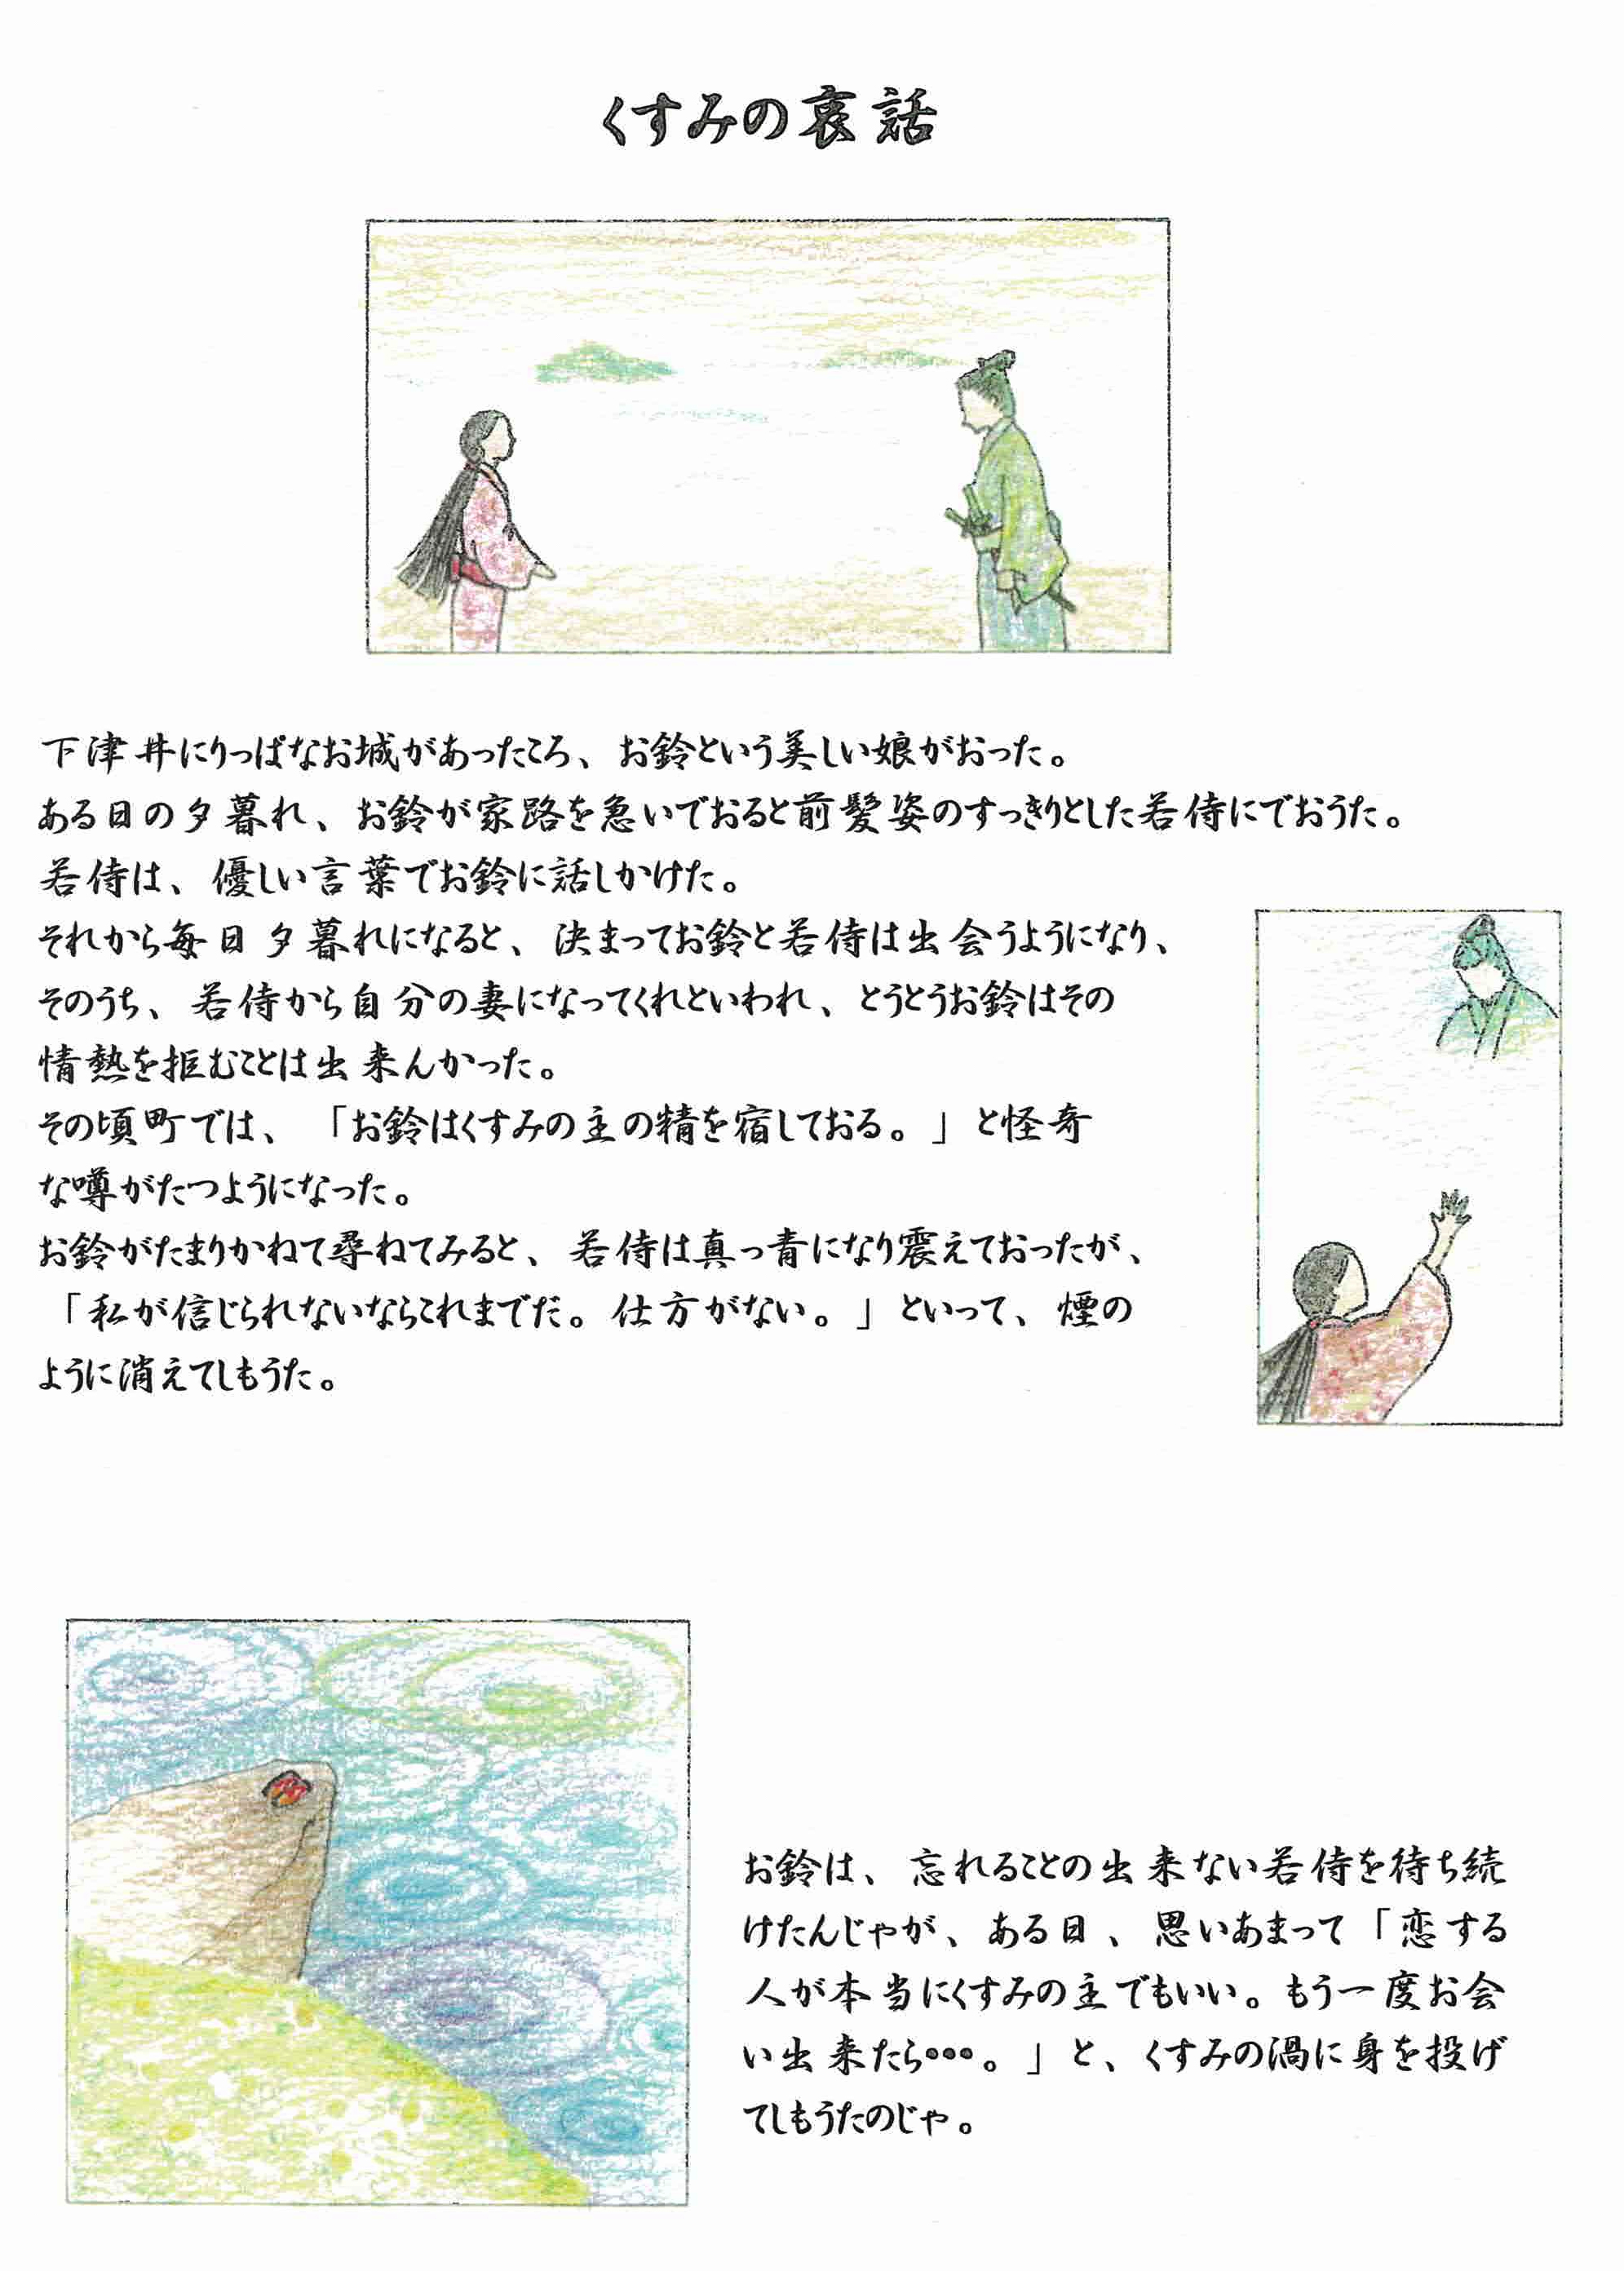 くすみの哀話
下津井にりっぱなお城があったころ、お鈴という美しい娘がおった。
ある日の夕暮れ、お鈴が家路を急いでおると前髪姿のすっきりとした若侍にでおうた。
若侍は、優しい言葉でお鈴に話しかけた。
それから毎日夕暮れになると、決まってお鈴と若侍は出会うようになり、
そのうち、若侍から自分の妻になってくれといわれ、とうとうお鈴はその
情熱を拒むことは出来んかった。
その頃町では、「お鈴はくすみの主の精を宿しておる。」と怪奇
な噂がたつようになった。
お鈴がたまりかねて尋ねてみると、若侍は真っ青になり震えておったが、
「私が信じられないならこれまでだ。仕方がない。」といって、煙の
ように消えてしもうた。
お鈴は、忘れることの出来ない若侍を待ち続
けたんじゃが、ある日、思いあまって「恋する
人が本当にくすみの主でもいい。もう一度お会
い出来たら・・・。」と、くすみの渦に身を投げ
てしもうたのじゃ。